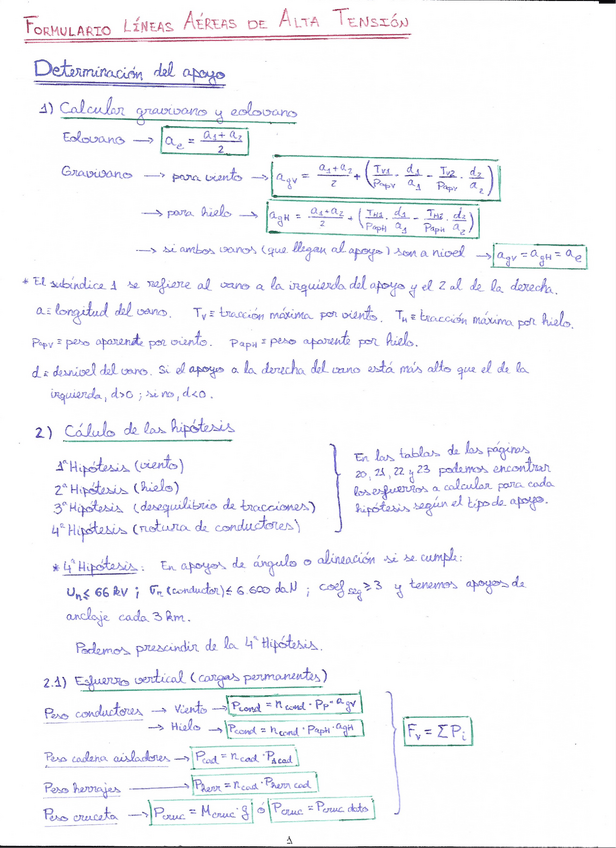 FORMULARIO LÍNEAS AÉREAS DE ALTA TENSIÓN
Determinación del apoyo
1) Calcular gravivano y eolovano
Eolovano → a_e = (a_1 + a_2)/2
Gravivano → para viento → a_gv = (a_1 + a_2)/2 + (T_V1/P_apv · d_1/a_1 − T_V2/P_apv · d_2/a_2)
→ para hielo → a_gH = (a_1 + a_2)/2 + (T_H1/P_apH · d_1/a_1 − T_H2/P_apH · d_2/a_2)
→ si ambos vanos (que llegan al apoyo) son a nivel → a_gv = a_gH = a_e
* El subíndice 1 se refiere al vano a la izquierda del apoyo y el 2 al de la derecha.
a ≡ longitud del vano. T_V ≡ tracción máxima por viento. T_H ≡ tracción máxima por hielo.
P_apv ≡ peso aparente por viento. P_apH ≡ peso aparente por hielo.
d ≡ desnivel del vano. Si el apoyo a la derecha del vano está más alto que el de la
izquierda, d>0 ; si no, d<0.
2) Cálculo de las hipótesis
1ª Hipótesis (viento)
2ª Hipótesis (hielo)
3ª Hipótesis (desequilibrio de tracciones)
4ª Hipótesis (rotura de conductores)
En las tablas de las páginas
20, 21, 22 y 23 podemos encontrar
los esfuerzos a calcular para cada
hipótesis según el tipo de apoyo.
* 4ª Hipótesis: En apoyos de ángulo o alineación si se cumple:
U_n ≤ 66 kV ; σ_n (conductor) ≤ 6.600 daN ; coef_seg ≥ 3 y tenemos apoyos de
anclaje cada 3 km.
Podemos prescindir de la 4ª Hipótesis.
2.1) Esfuerzo vertical (cargas permanentes)
Peso conductores → Viento → P_cond = n_cond · P_P · a_gv
→ Hielo → P_cond = n_cond · P_apH · a_gH
Peso cadena aisladores → P_cad = n_cad · P_1cad
Peso herrajes → P_herr = n_cad · P_herr cad
Peso cruceta → P_cruc = M_cruc · g ó P_cruc = P_cruc dato
F_v = ΣP_i
1